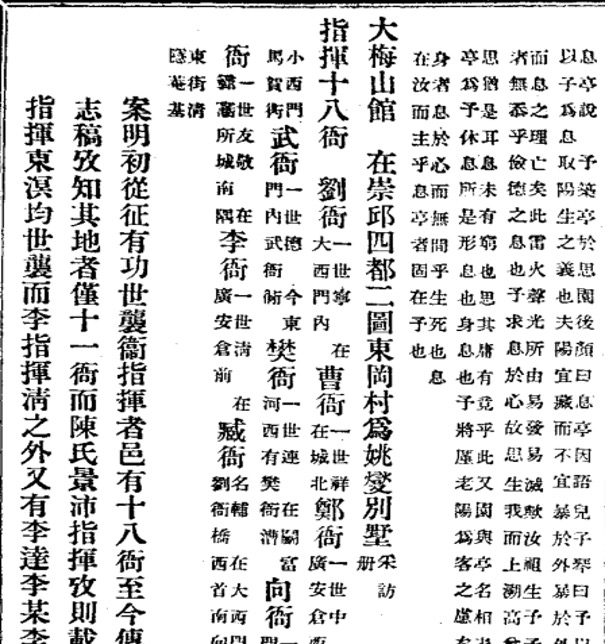 息亭說 予築亭於思園後顏曰息亭因語兒子琴曰予
以子爲息取陽生之義也夫陽宜藏而不宜暴於外暴於
而息之理亡矣此雷火聲光所由易發易滅歟汝祖生子
者無忝乎儉德之息也予求息於心故思生我而上溯高
思猶是耳息未有窮也思其庸有竟乎此又園與亭名相
亭爲予休息所是形息也身息也予將厪老陽爲客之慮
身者息於心而無間乎生死也息
在汝而主乎息亭者固在予也
大梅山館 在崇邱四都二圖東岡村爲姚燮別墅 采訪冊
指揮十八衙 劉衙 一世寧 在大西門內 曹衙 一世祥在城北 鄭衙 一世中廣安倉西
小西門馬賀衖 武衙 一世德 今東門內武衙衖 樊衙 一世連 在關富河西有樊衙漕 向衙 一
衙 一世友敬 在所城南隅 李衙 一世清 在廣安倉前 臧衙 名輔 在大西門劉衙橋西首南向
東街清隱菴基
案明初從征有功世襲衞指揮者邑有十八衙至今傳
志稿攷知其地者僅十一衙而陳氏景沛指揮攷則載
指揮東溟均世襲而李指揮清之外又有李逵李某李